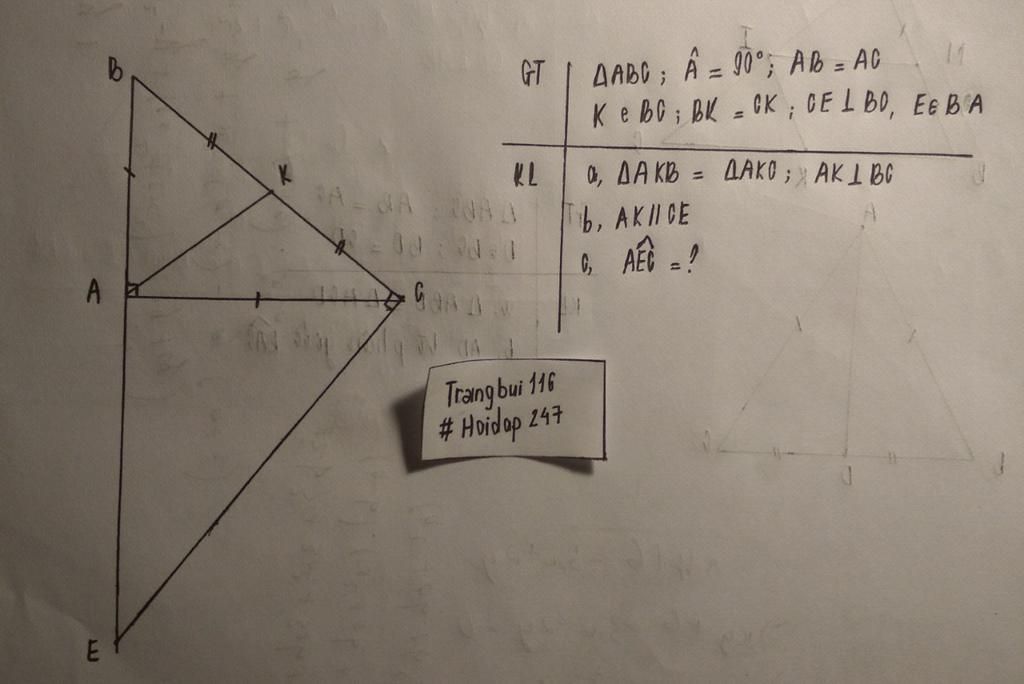 B
K
A
C
E
GT
ΔABC ; Â = 90° ; AB = AC
K e BC ; BK = CK ; CE ⊥ BC, E∈BA
KL
a, ΔAKB = ΔAKC ; AK ⊥ BC
b, AK // CE
c, AÊC = ?
Trangbui 116
# Hoidap 247